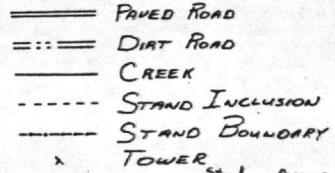 PAVED ROAD
DIRT ROAD
CREEK
STAND INCLUSION
STAND BOUNDARY
TOWER